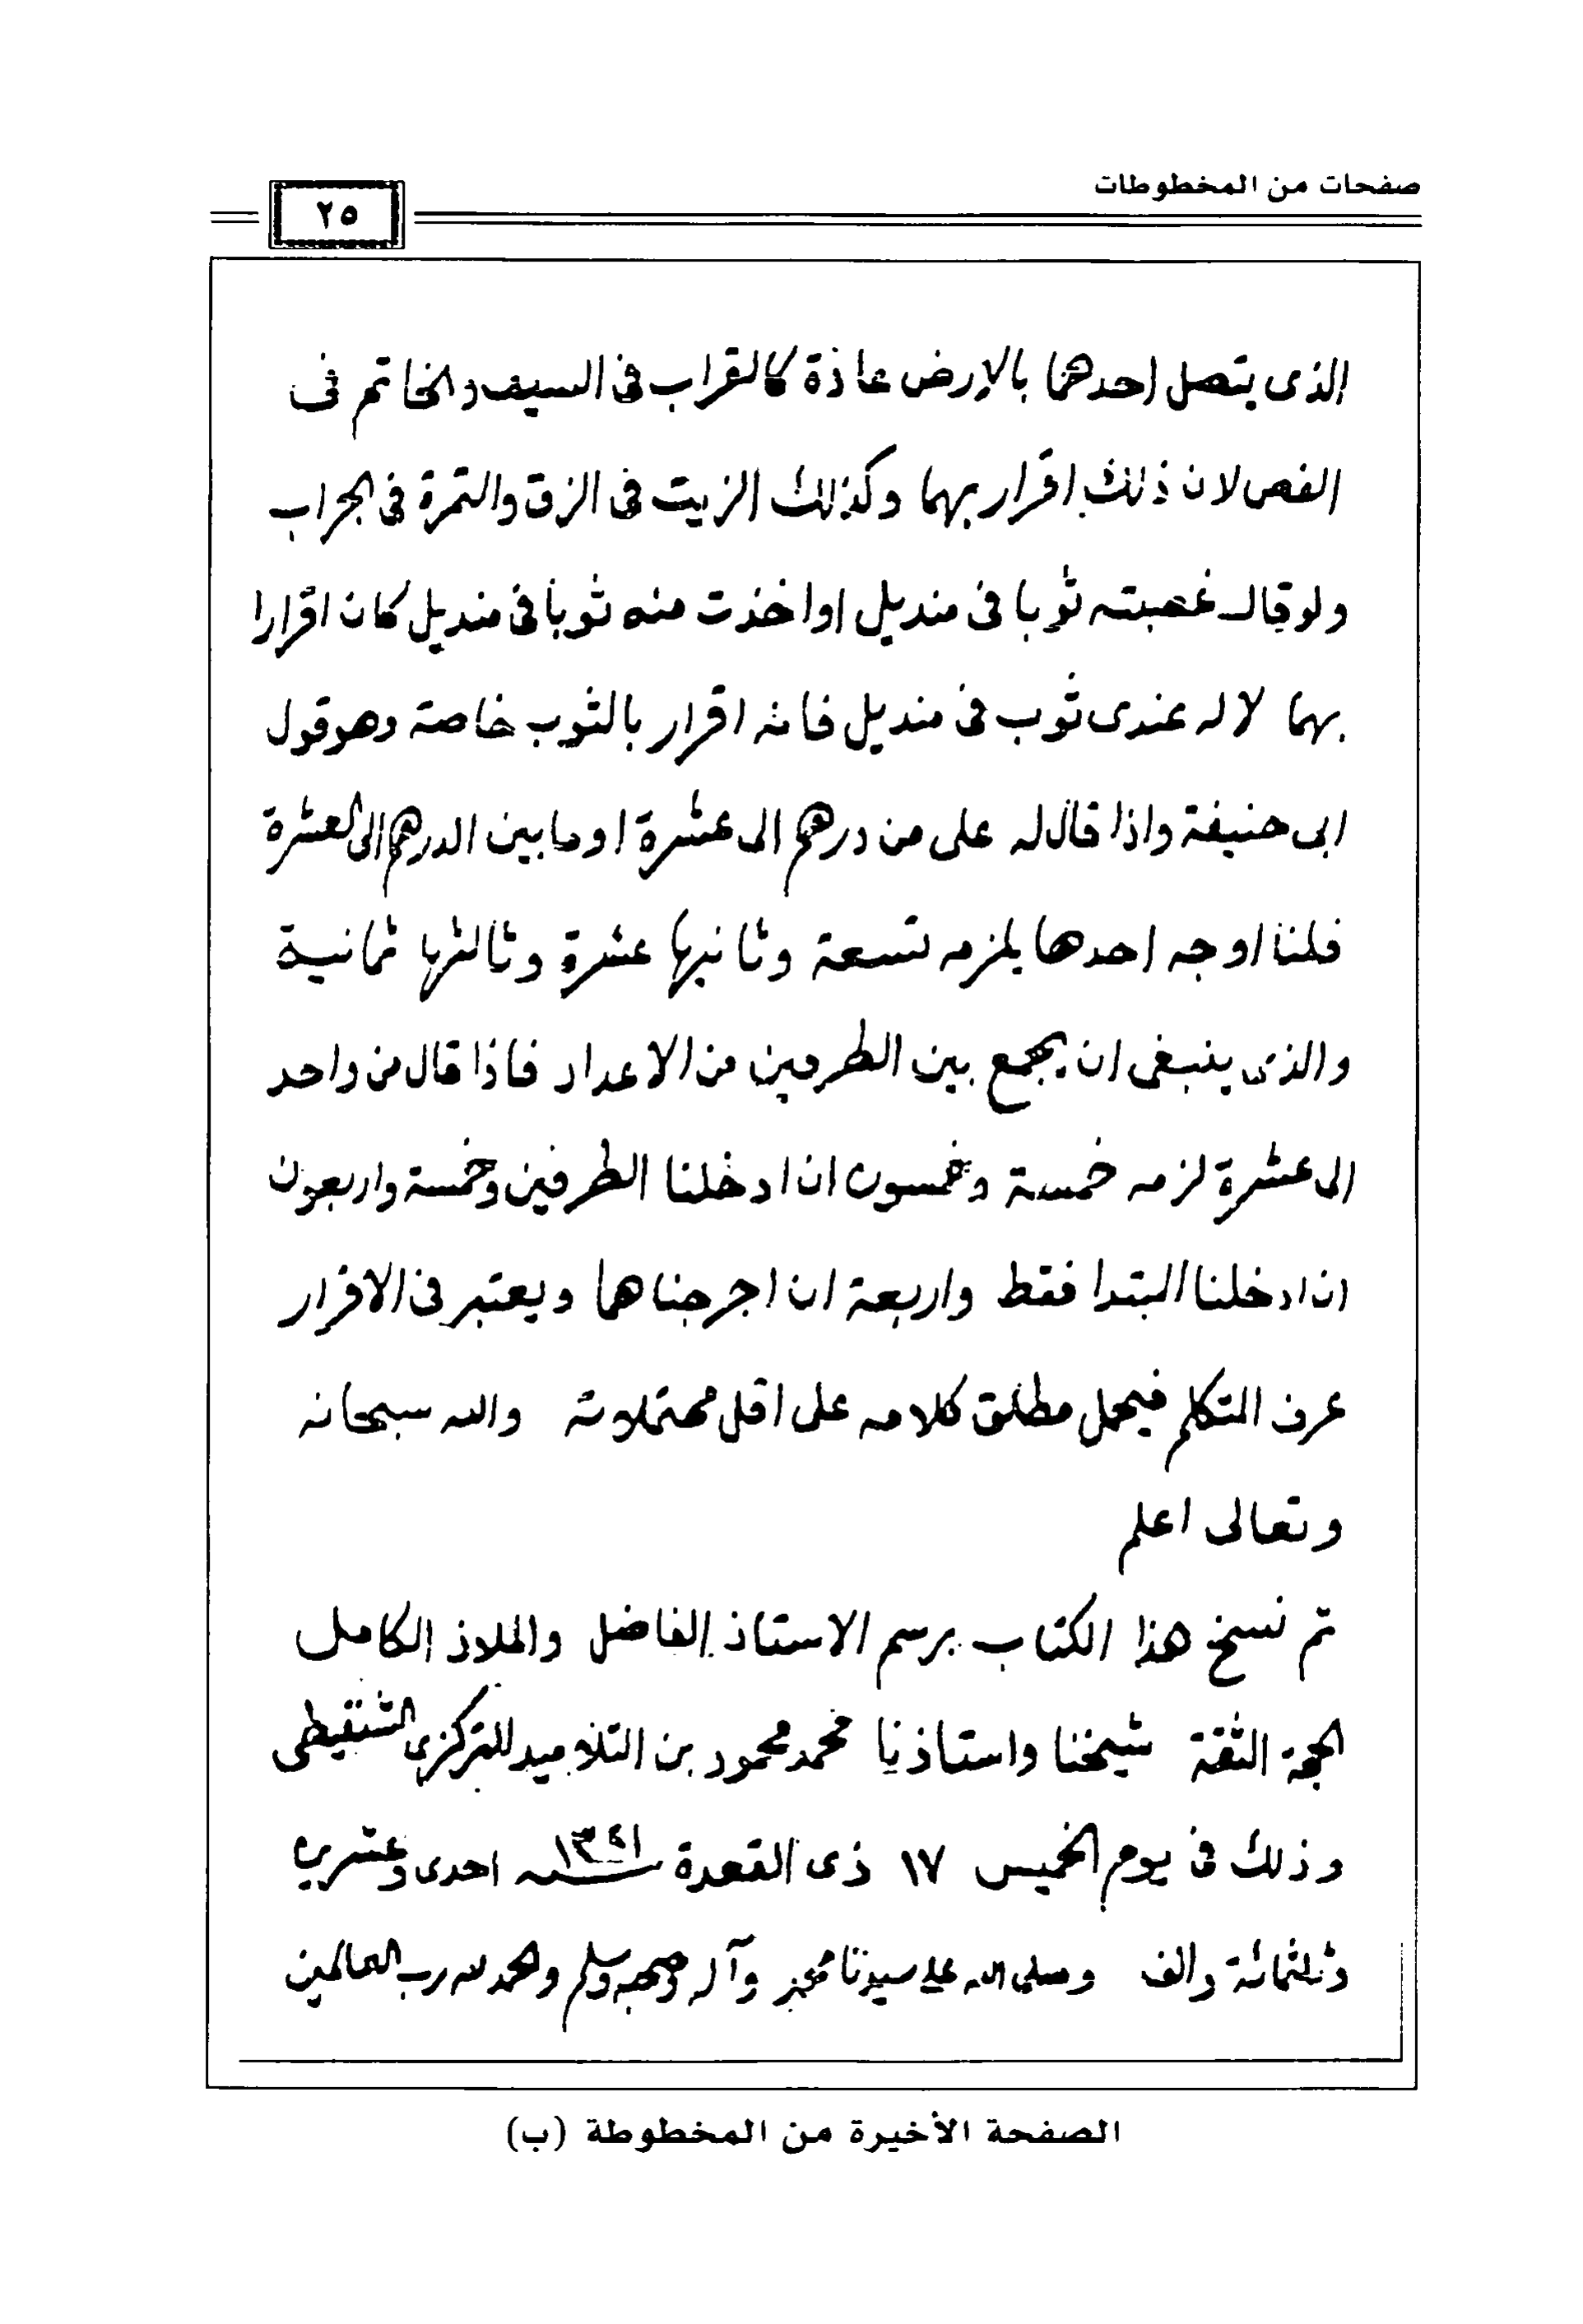 صفحات من المخطوطات
٢٥
الذى يتصل احدهما بالارض عاذة كالقراب فى السيف والخاتم فى
الفص لان ذلك اقرار بهما وكذلك الزيت فى الزق والتمرة فى الجراب
ولو قال غصبته ثوبا فى منديل او اخذت منه ثوبا فى منديل كان اقرارا
بهما لا له عندى ثوب فى منديل فانه اقرار بالثوب خاصة وهو قول
ابى حنيفة واذا قال له على من درهم الى عشرة او ما بين الدرهم الى العشرة
فلنا اوجه احدها يلزمه تسعة وثانيها عشرة وثالثها ثمانية
والذى ينبغى ان يجمع بين الطرفين من الاعداد فاذا قال من واحد
الى عشرة لزمه خمسة وخمسون ان ادخلنا الطرفين وخمسة واربعون
ان ادخلنا المبتدا فقط واربعة ان اخرجناهما ويعتبر فى الاقرار
عرف المتكلم فيحمل مطلق كلامه على اقل محتملاته والله سبحانه
وتعالى اعلم
تم نسخ هذا الكتاب برسم الاستاذ الفاضل والملاذ الكامل
الحجة الثقة شيخنا واستاذنا محمد محمود بن التلاميد التركزى الشنقيطى
وذلك فى يوم الخميس ١٧ ذى القعدة سنه ١٣٢١ احدى وعشرين
وثلثمائة والف وصلى الله على سيدنا محمد وآله وصحبه وسلم والحمد لله رب العالمين
الصفحة الأخيرة من المخطوطة (ب)